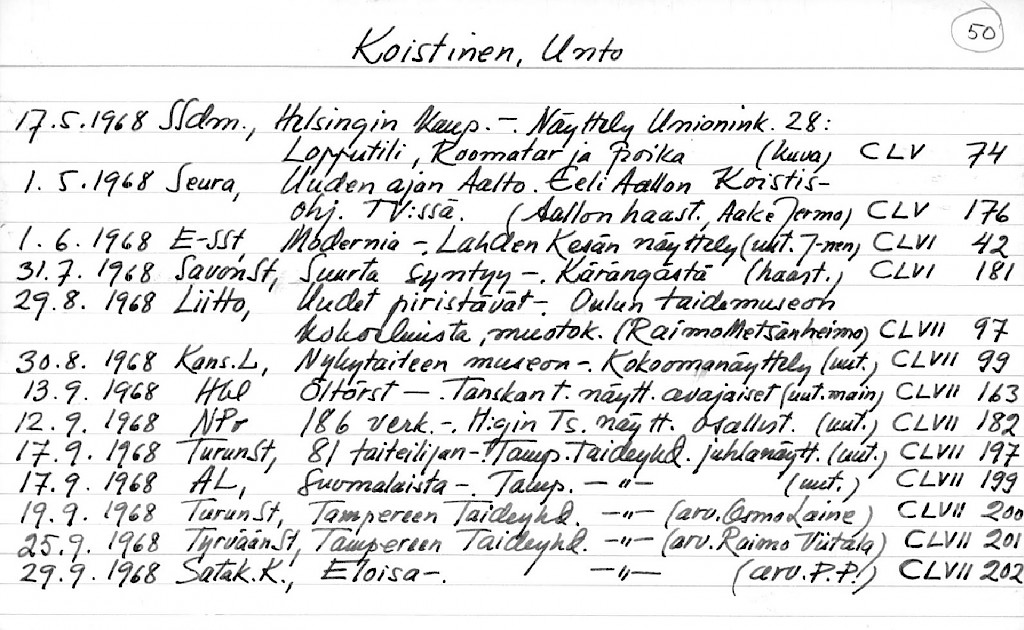 50
Koistinen, Unto
17.5.1968 SSdm., Helsingin Kaup. -. Näyttely Unionink. 28:
Lopputili, Roomatar ja Poika (kuva) CLV 74
1. 5. 1968 Seura, Uuden ajan Aalto. Eeli Aallon Koistis-
ohj. TV:ssä. (Aallon haast., Aake Jermo) CLV 176
1. 6. 1968 E-SSt, Modernia -. Lahden Kesän näyttely (uut. J-nen) CLVI 42
31.7. 1968 SavonSt, Suurta syntyy -. Kärängästä (haast.) CLVI 181
29.8. 1968 Liitto, Uudet piristävät -. Oulun taidemuseon
kokoelmista, muotok. (Raimo Metsänheimo) CLVII 97
30.8. 1968 Kans.L, Nykytaiteen museon -. Kokoomanäyttely (uut.) CLVII 99
13.9. 1968 Hbl Öltörst — . Tanskan t. näytt. avajaiset (uut. main) CLVII 163
12.9. 1968 NPr 186 verk. -. H:gin Ts. näytt. osallist. (uut.) CLVII 182
17.9. 1968 TurunSt, 81 taiteilijan -. Tamp. Taideyhd. juhlanäytt. (uut.) CLVII 197
17.9. 1968 AL, Suomalaista -. Tamp. — " — (uut.) CLVII 199
19.9. 1968 TurunSt, Tampereen Taideyhd. — " — (arv. Osmo Laine) CLVII 200
25.9. 1968 TyrväänSt, Tampereen Taideyhd. — " — (arv. Raimo Viitala) CLVII 201
29.9. 1968 Satak.K., Eloisa -. — " — (arv. P.P.) CLVII 202